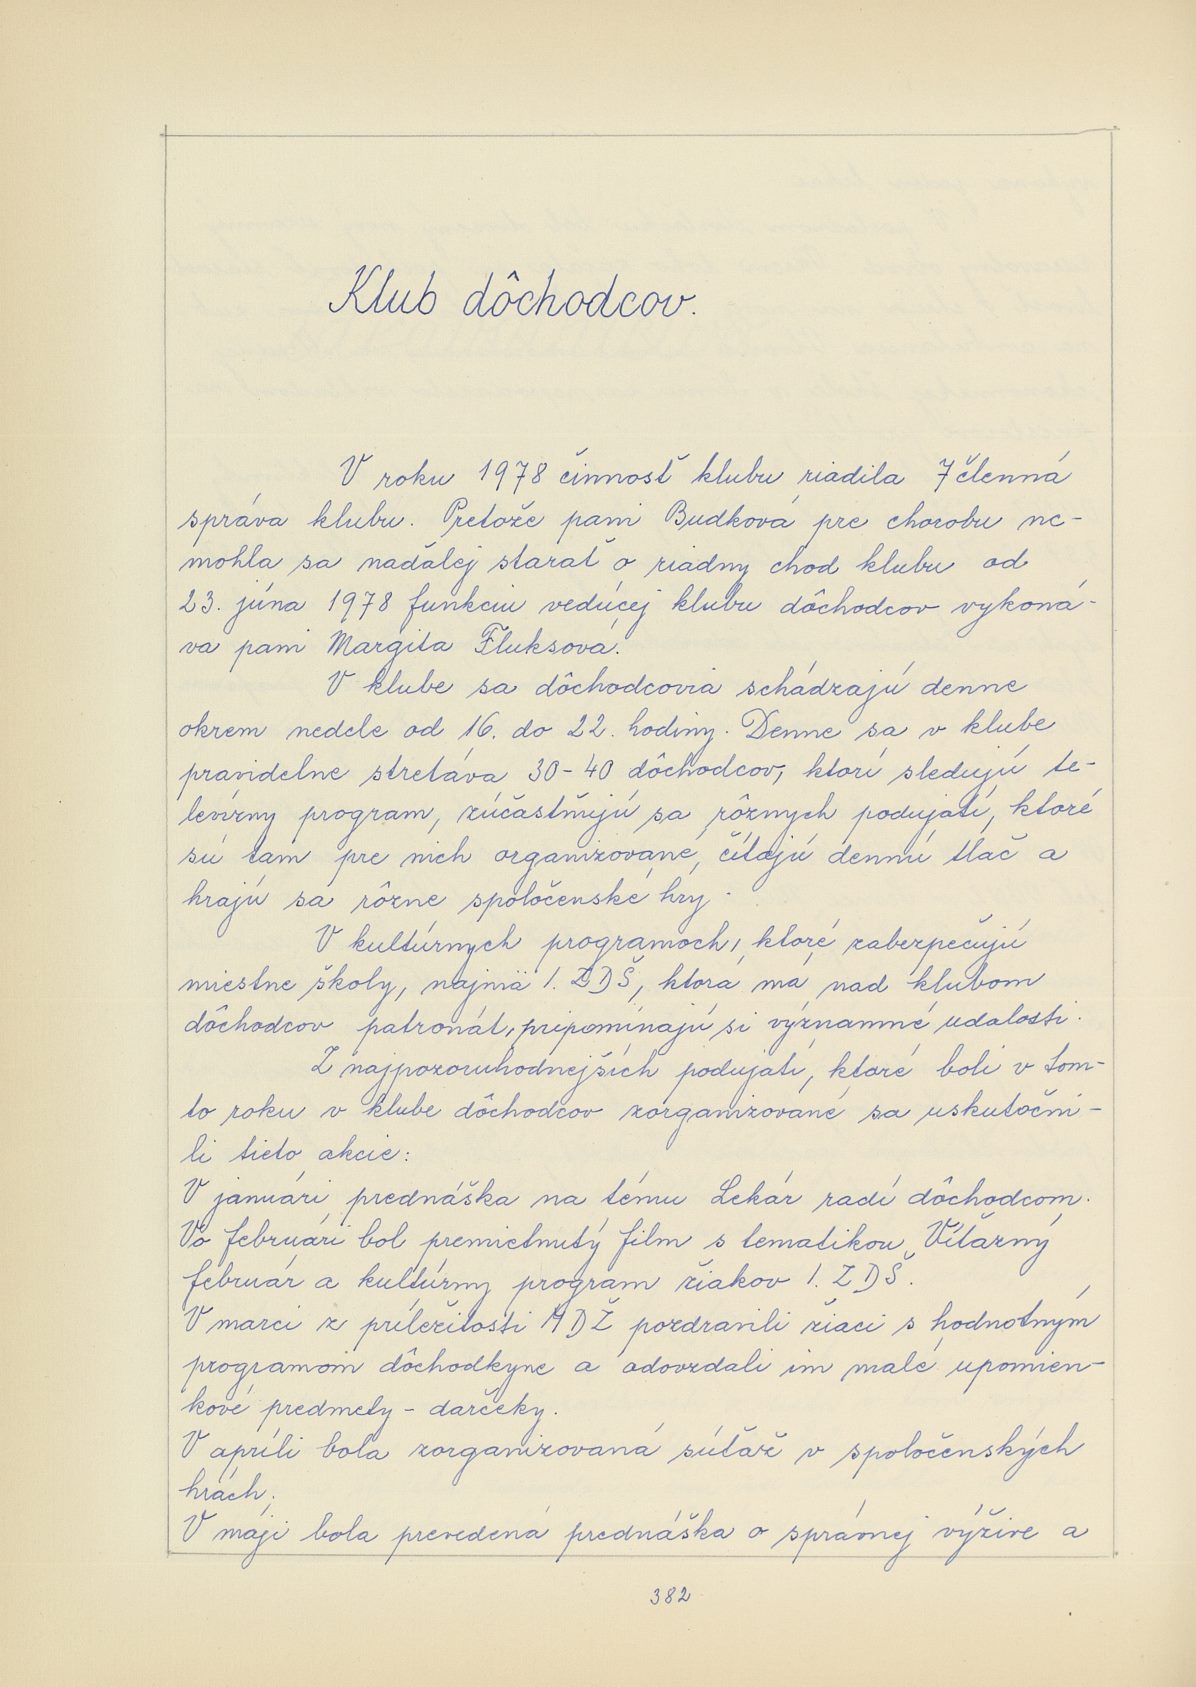 Klub dôchodcov.
V roku 1978 činnosť klubu riadila 7členná
správa klubu. Pretože pani Budková pre chorobu ne-
mohla sa naďalej starať o riadny chod klubu od
23. júna 1978 funkciu vedúcej klubu dôchodcov vykoná-
va pani Margita Fluksová.
V klube sa dôchodcovia schádzajú denne
okrem nedele od 16. do 22. hodiny. Denne sa v klube
pravidelne stretáva 30-40 dôchodcov, ktorí sledujú te-
levízny program, zúčastňujú sa rôznych podujatí, ktoré
sú tam pre nich organizované, čítajú dennú tlač a
hrajú sa rôzne spoločenské hry.
V kultúrnych programoch, ktoré zabezpečujú
miestne školy, najmä I. ZDŠ, ktorá má nad klubom
dôchodcov patronát, pripomínajú si významné udalosti.
Z najpozoruhodnejších podujatí, ktoré boli v tom-
to roku v klube dôchodcov zorganizované sa uskutočni-
li tieto akcie:
V januári prednáška na tému Lekár radí dôchodcom.
Vo februári bol premietnutý film s tematikou Víťazný
február a kultúrny program žiakov I. ZDŠ.
V marci z príležitosti MDŽ pozdravili žiaci s hodnotným
programom dôchodkyne a odovzdali im malé upomien-
kové predmety - darčeky.
V apríli bola zorganizovaná súťaž v spoločenských
hrách.
V máji bola prevedená prednáška o správnej výžive a
382